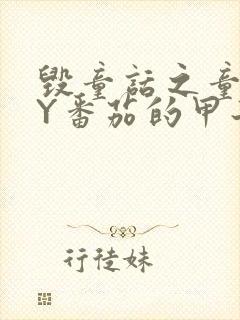 毁童话之童
Y番茄的甲
行徒妹